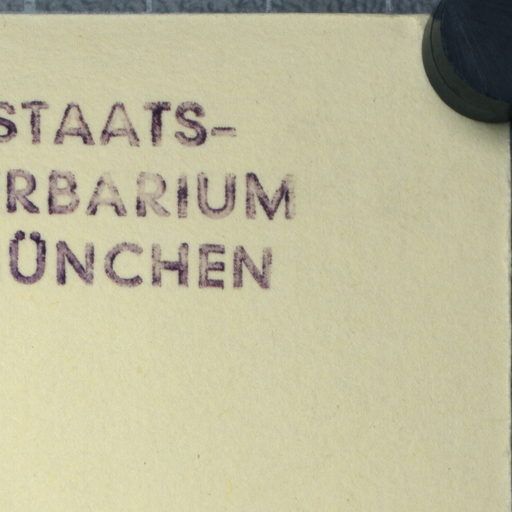 STAATS-
RBARIUM
ÜNCHEN